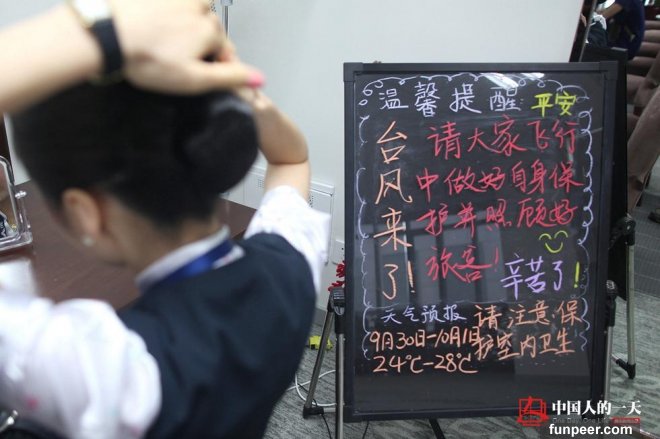 温馨提醒
平安
台风来了!
请大家飞行
中做好自身保
护并照顾好
旅客!
辛苦了!
天气预报
9月30日-10月1日
24℃-28℃
请注意保
护室内卫生
中国人的一天
funpeer.com